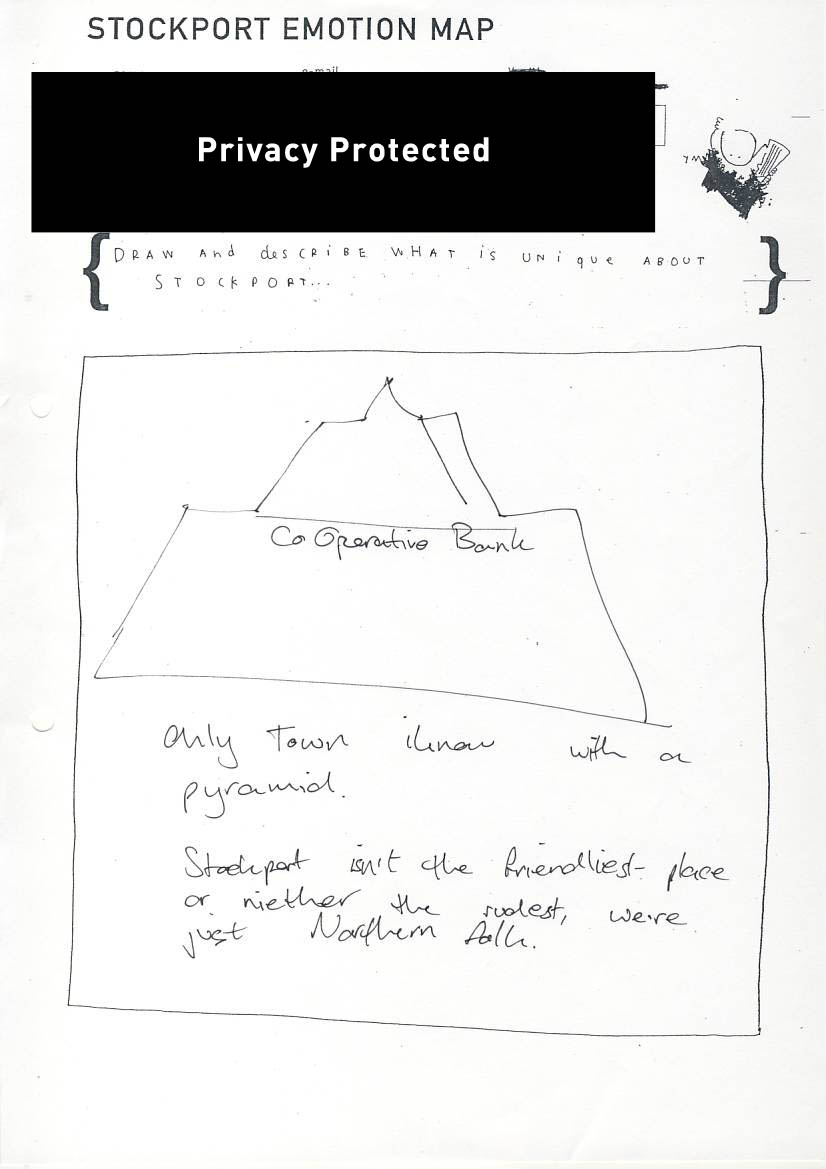 STOCKPORT EMOTION MAP
e-mail
Privacy Protected
DRAW And desCRiBE WHAT is UNique ABOUT
STOCKPORT...
Co Operative Bank
Only Town iknow with a
pyramid.
Stockport isn't the friendliest place
or niether the rudest, we're
just Northern folk.